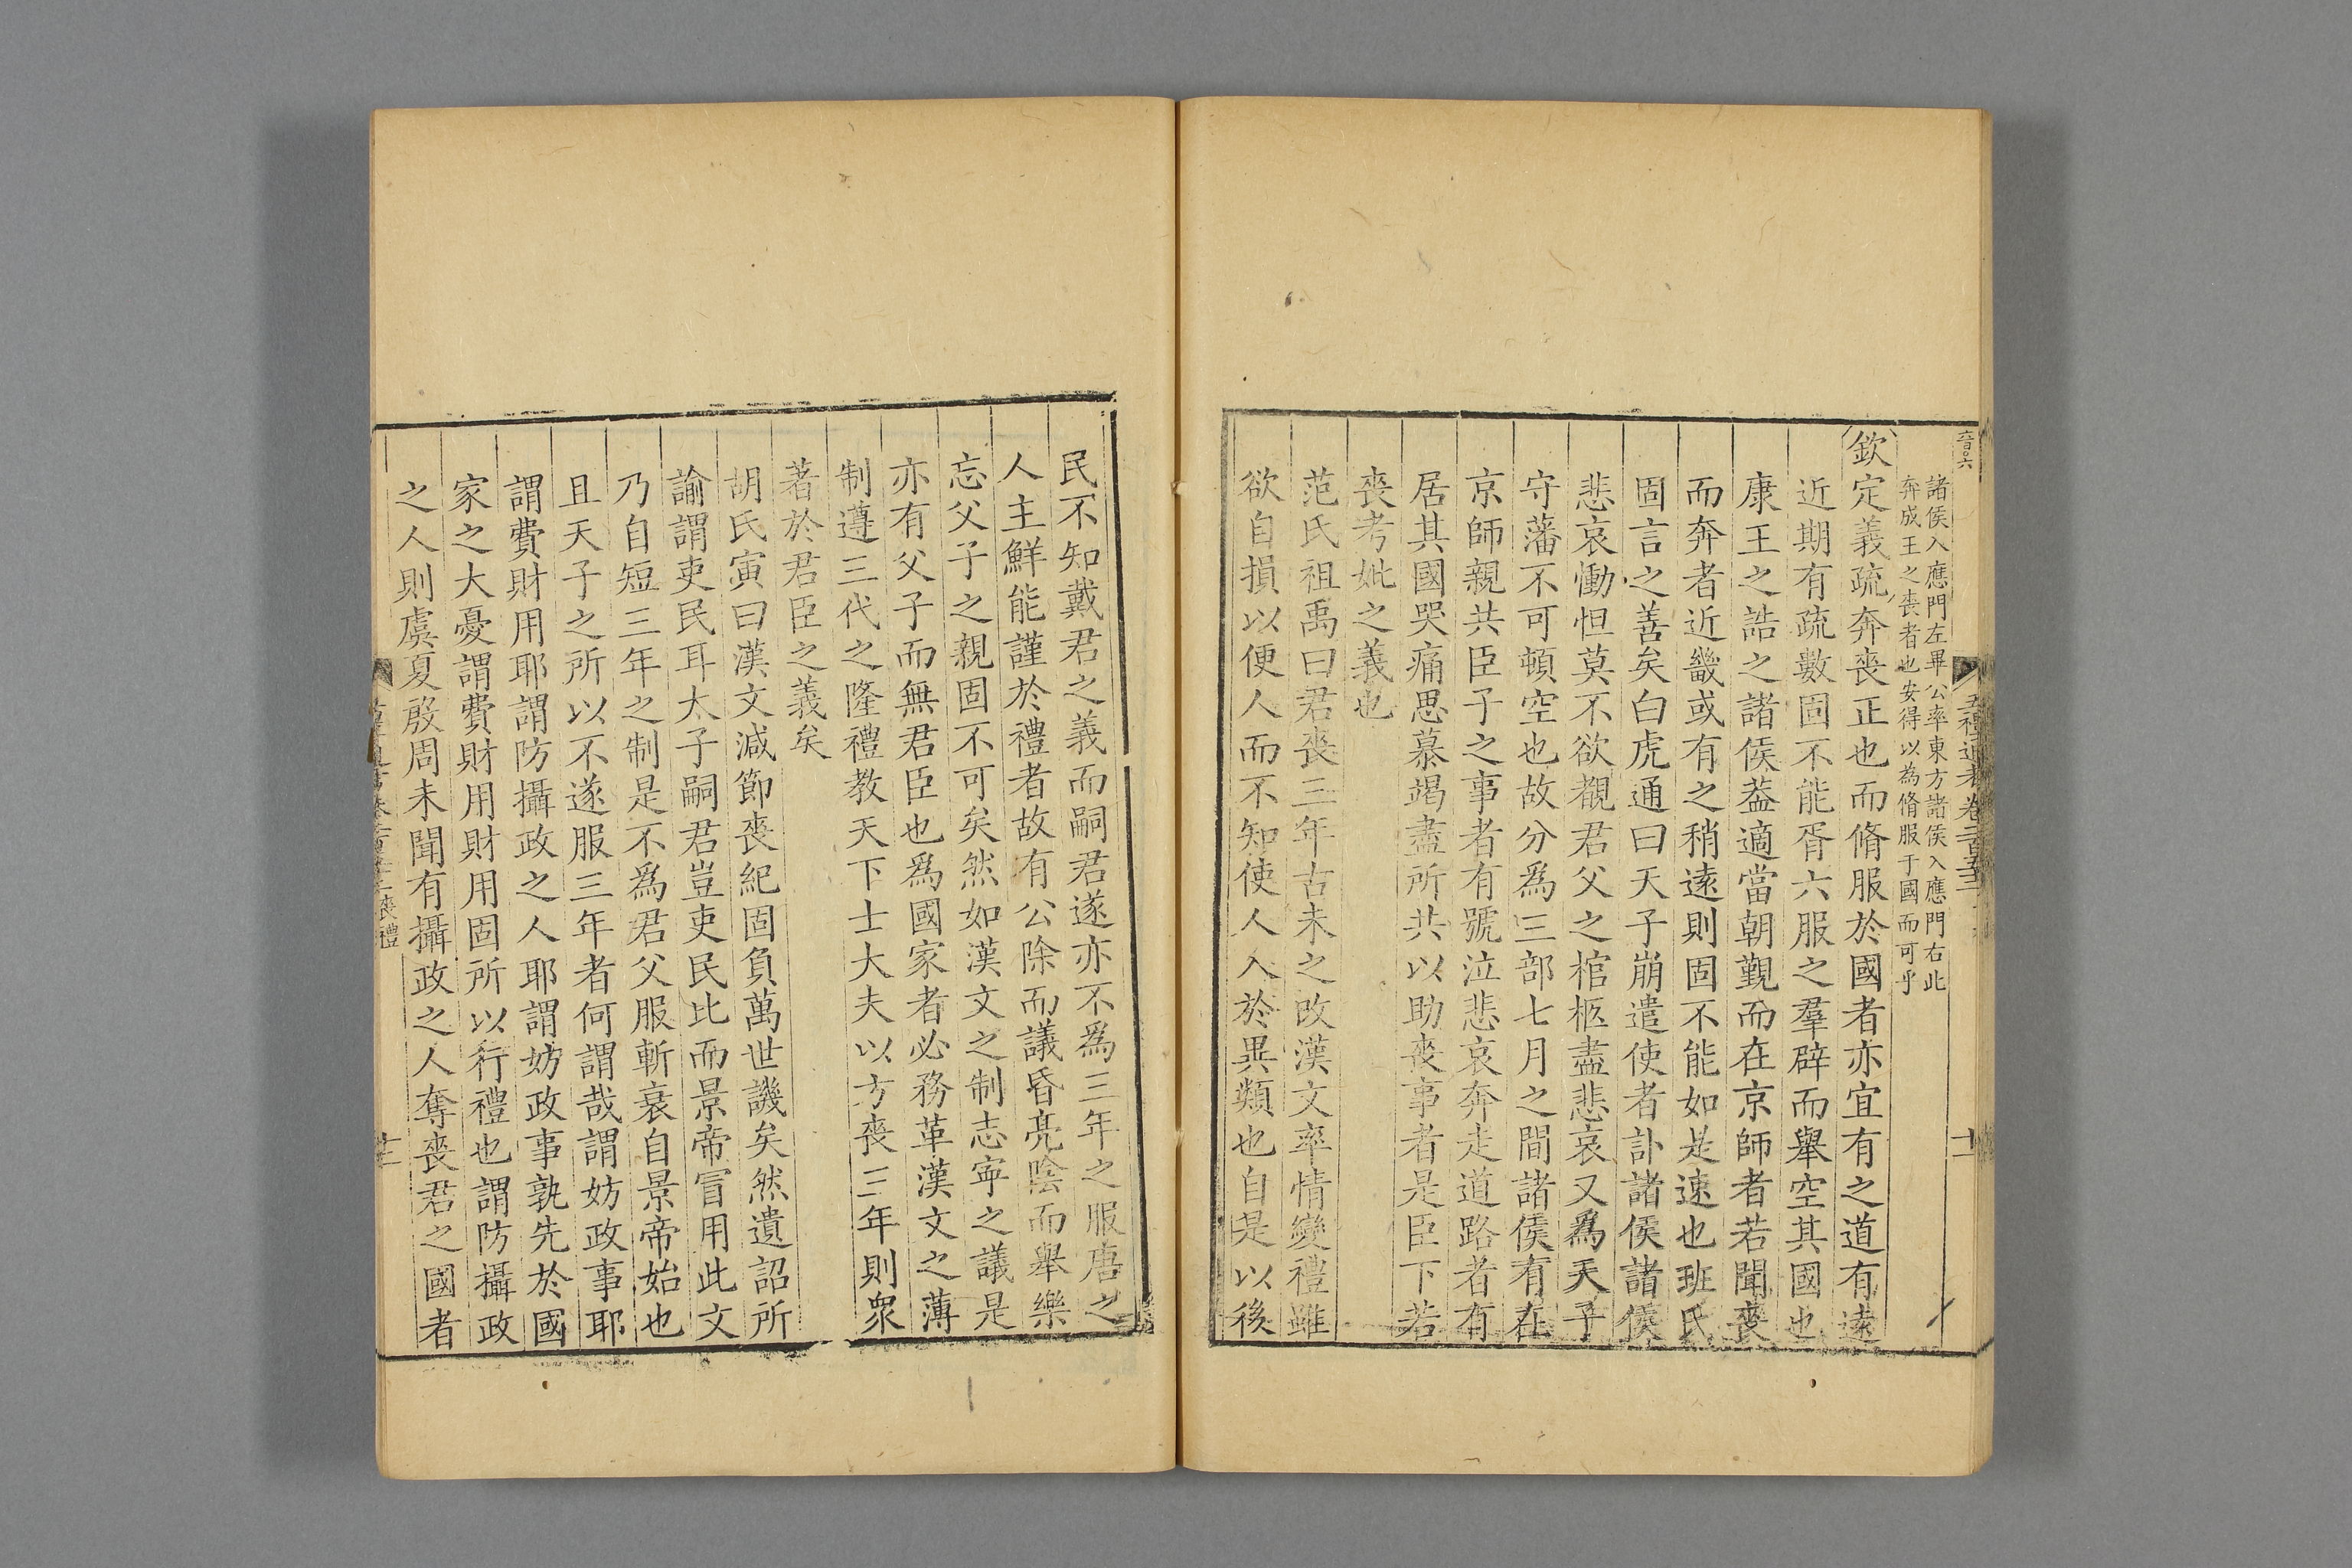 諸侯入應門左畢公率東方諸侯入應門右此
奔成王之喪者也安得以為脩服于國而可乎
欽定義疏奔喪正也而脩服於國者亦宜有之道有遠
近期有疏數固不能胥六服之羣辟而舉空其國也
康王之誥之諸侯葢適當朝覲而在京師者若聞喪
而奔者近畿或有之稍逺則固不能如是速也班氏
固言之善矣白虎通曰天子崩遣使者訃諸侯諸侯
悲哀慟怛莫不欲覩君父之棺柩盡悲哀又爲天子
守藩不可頓空也故分爲三部七月之間諸侯有在
京師親共臣子之事者有號泣悲哀奔走道路者有
居其國哭痛思慕竭盡所共以助喪事者是臣下若
喪考妣之義也
范氏祖禹曰君喪三年古未之改漢文率情變禮雖
欲自損以便人而不知使人入於異類也自是以後
民不知戴君之義而嗣君遂亦不爲三年之服唐之
人主鮮能謹於禮者故有公除而議昏亮陰而舉樂
忘父子之親固不可矣然如漢文之制志寧之議是
亦有父子而無君臣也爲國家者必務革漢文之薄
制遵三代之隆禮教天下士大夫以方喪三年則衆
著於君臣之義矣
胡氏寅曰漢文減節喪紀固負萬世譏矣然遺詔所
諭謂吏民耳太子嗣君豈吏民比而景帝冒用此文
乃自短三年之制是不爲君父服斬衰自景帝始也
且天子之所以不遂服三年者何謂哉謂妨政事耶
謂費財用耶謂防攝政之人耶謂妨政事孰先於國
家之大憂謂費財用財用固所以行禮也謂防攝政
之人則虞夏殷周未聞有攝政之人奪喪君之國者